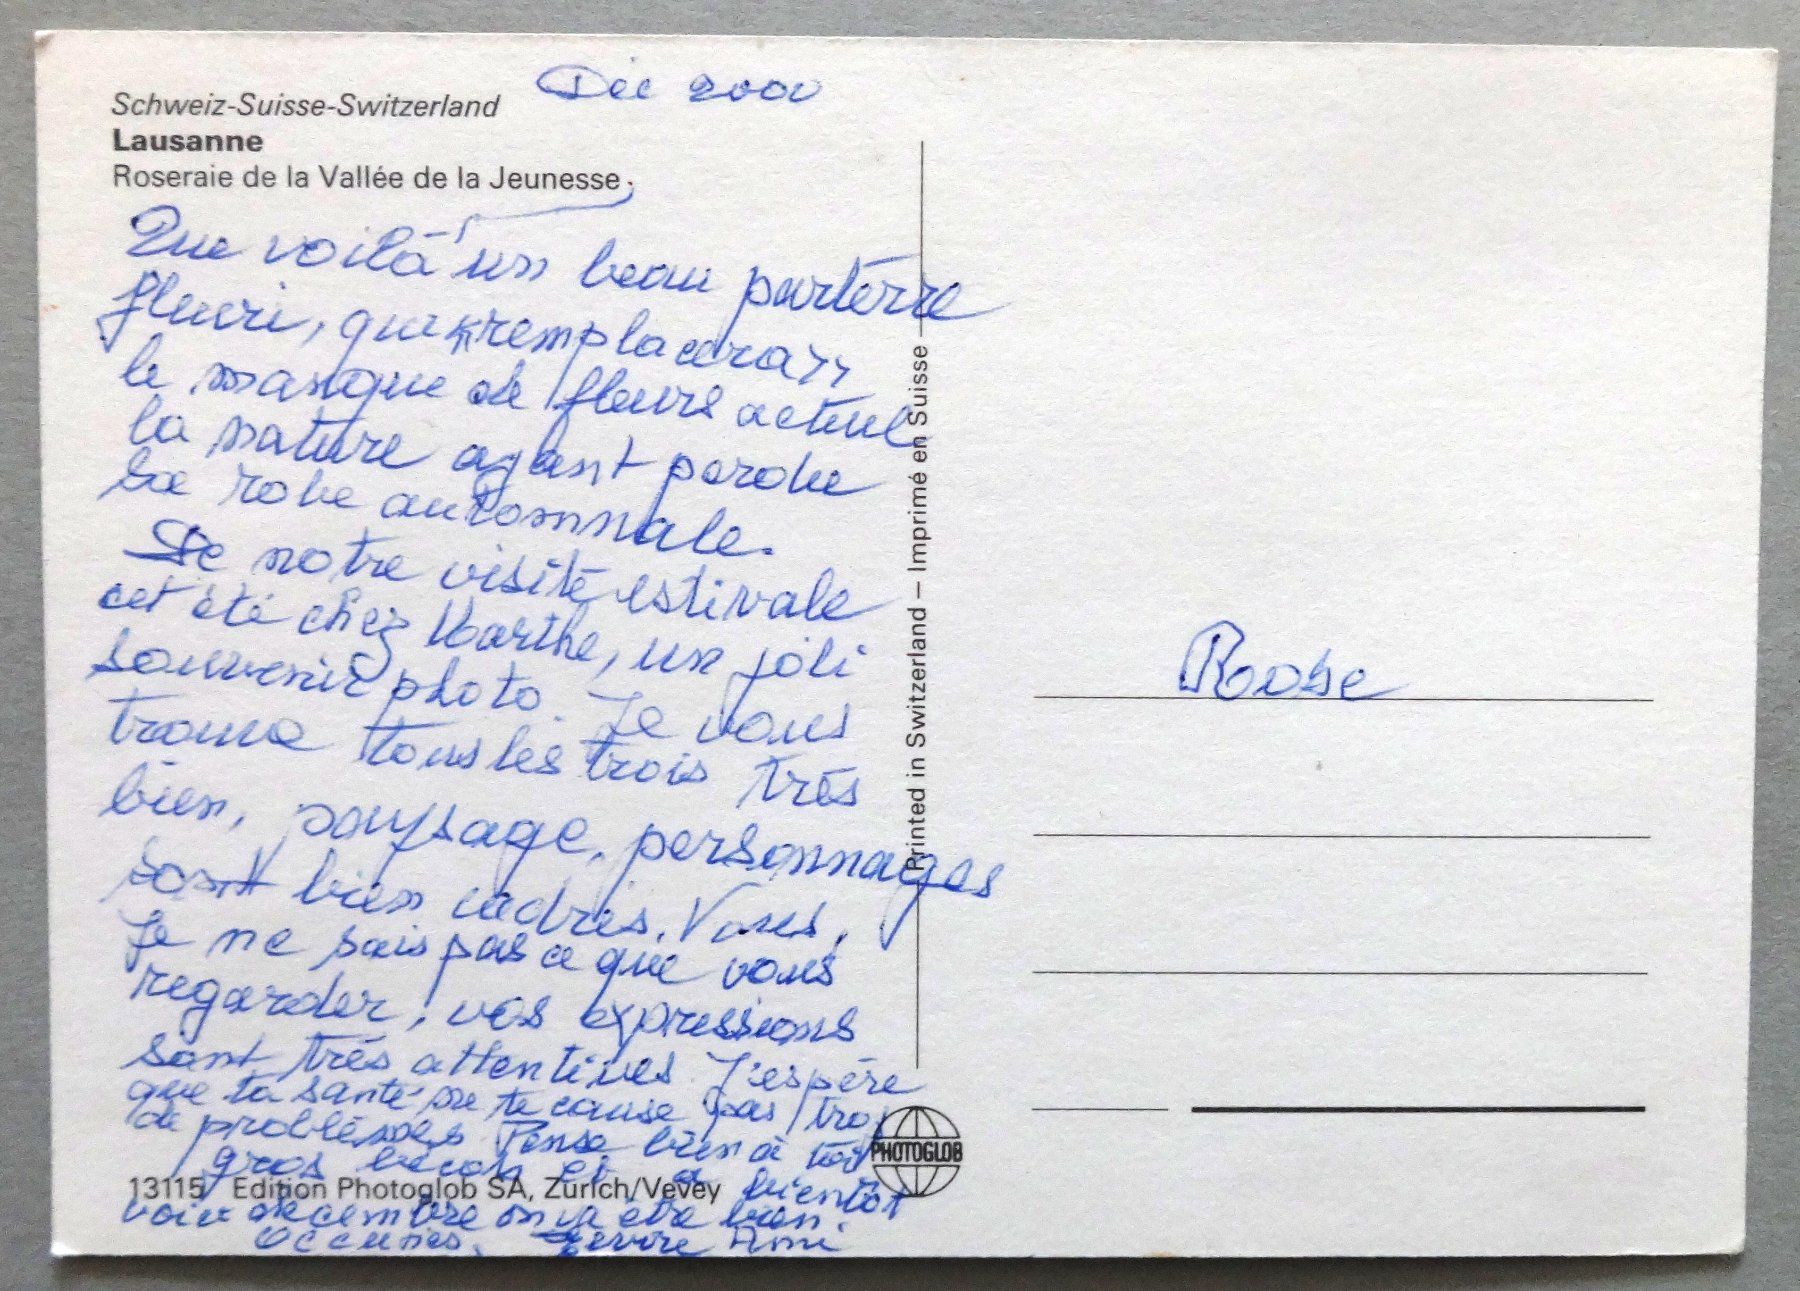 Déc 2000
Schweiz-Suisse-Switzerland
Lausanne
Roseraie de la Vallée de la Jeunesse
Que voilà un beau parterre
fleuri, qui remplacera
le manque de fleurs actuel
la nature ayant perdue
sa robe automnale.
De notre visite estivale
cet été chez Marthe, un joli
souvenir photo. Je vous
trouve tous les trois très
bien, paysage, personnages
sont bien cadrés. Vous,
Je ne sais pas ce que vous
regarder, vos expressions
sont très attentives. J'espère
que ta santé ne te cause pas trop
de problèmes. Pense bien à toi
gros bécots et a bientôt
13115 Edition Photoglob SA, Zürich/Vevey
voici décembre on va être bien
occupées.
Printed in Switzerland – Imprimé en Suisse
PHOTOGLOB
Roose